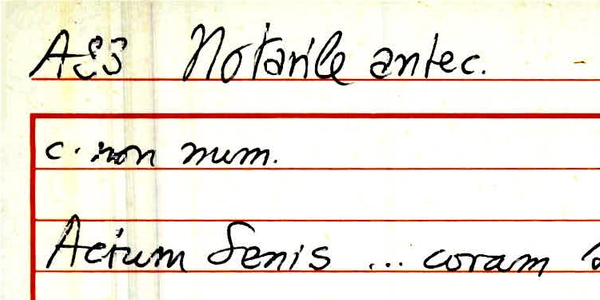 ASS Notarile antec.
c. non num.
Actum Senis ... coram